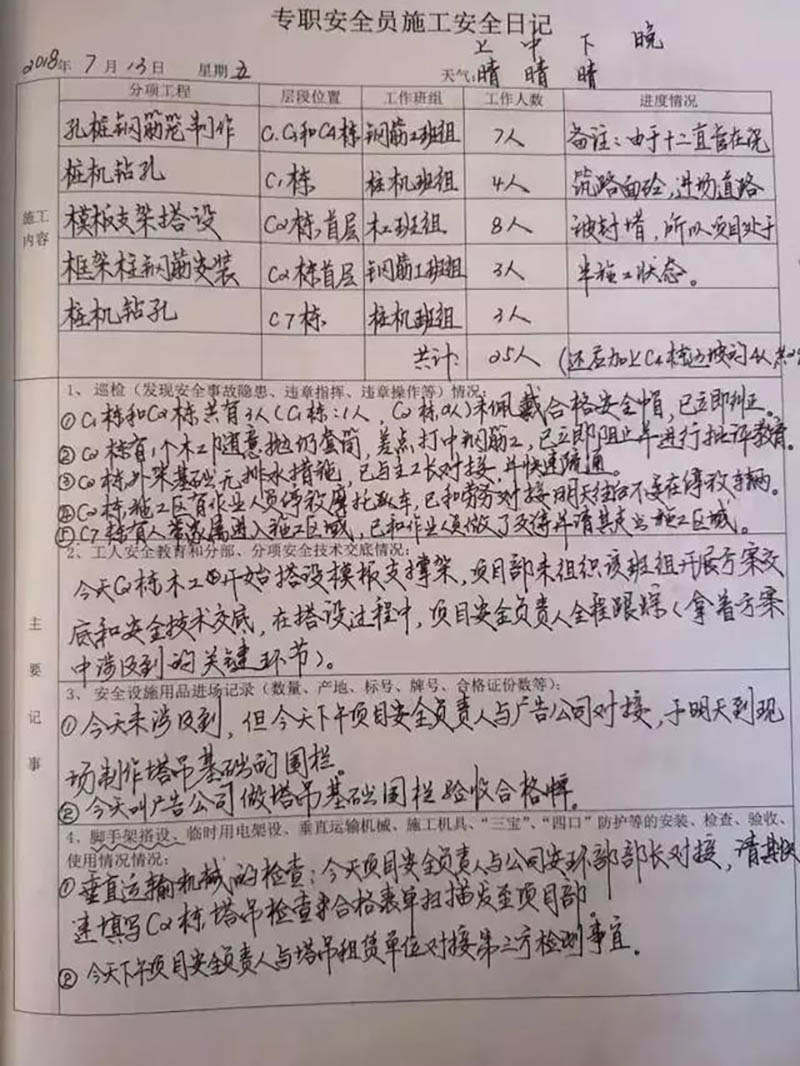 专职安全员施工安全日记
上 中 下 晚
2018年 7月13日 星期五 天气:晴 晴 晴
分项工程 层段位置 工作班组 工作人数 进度情况
孔桩钢筋笼制作 C1和C4栋 钢筋工班组 7人 备注:由于十二直管在浇
桩机钻孔 C1栋 桩机班组 4人 筑路面砼,进场道路
施工内容
模板支架搭设 C2栋首层 木工班组 8人 被封堵,所以项目处于
框架柱钢筋安装 C2栋首层 钢筋工班组 3人 半施工状态。
桩机钻孔 C7栋 桩机班组 3人
共计: 25人 (还应加上C4栋边坡的4人,共29
主要记事
1、巡检(发现安全事故隐患、违章指挥、违章操作等)情况
①C1栋和C2栋共有3人(C1栋:1人,C2栋2人)未佩戴合格安全帽,已立即纠正。
②C2栋有1个木工随意抛扔套筒,差点打中钢筋工,已立即阻止并进行批评教育。
③C2栋外架基础无排水措施,已与主工长对接,并快速疏通。
④C2栋施工区有作业人员停放摩托车,已和劳务对接明天往后不要在停放车辆。
⑤C7栋有人带家属进入施工区域,已和作业人员做了交待并请其走出施工区域。
2、工人安全教育和分部、分项安全技术交底情况:
今天C2栋木工开始搭设模板支撑架,项目部未组织该班组开展方案交
底和安全技术交底,在搭设过程中,项目安全负责人全程跟踪(拿着方案
中涉及到的关键环节)。
3、安全设施用品进场记录(数量、产地、标号、牌号、合格证份数等):
①今天未涉及到,但今天下午项目安全负责人与广告公司对接,于明天到现
场制作塔吊基础的围栏。
②今天叫广告公司做塔吊基础围栏验收合格牌。
4、脚手架搭设、临时用电架设、垂直运输机械、施工机具、“三宝”、“四口”防护等的安装、检查、验收、
使用情况情况:
①垂直运输机械的检查:今天项目安全负责人与公司安环部部长对接,请其快
速填写C2栋塔吊检查合格表单扫描发至项目部。
②今天下午项目安全负责人与塔吊租赁单位对接第三方检测事宜。